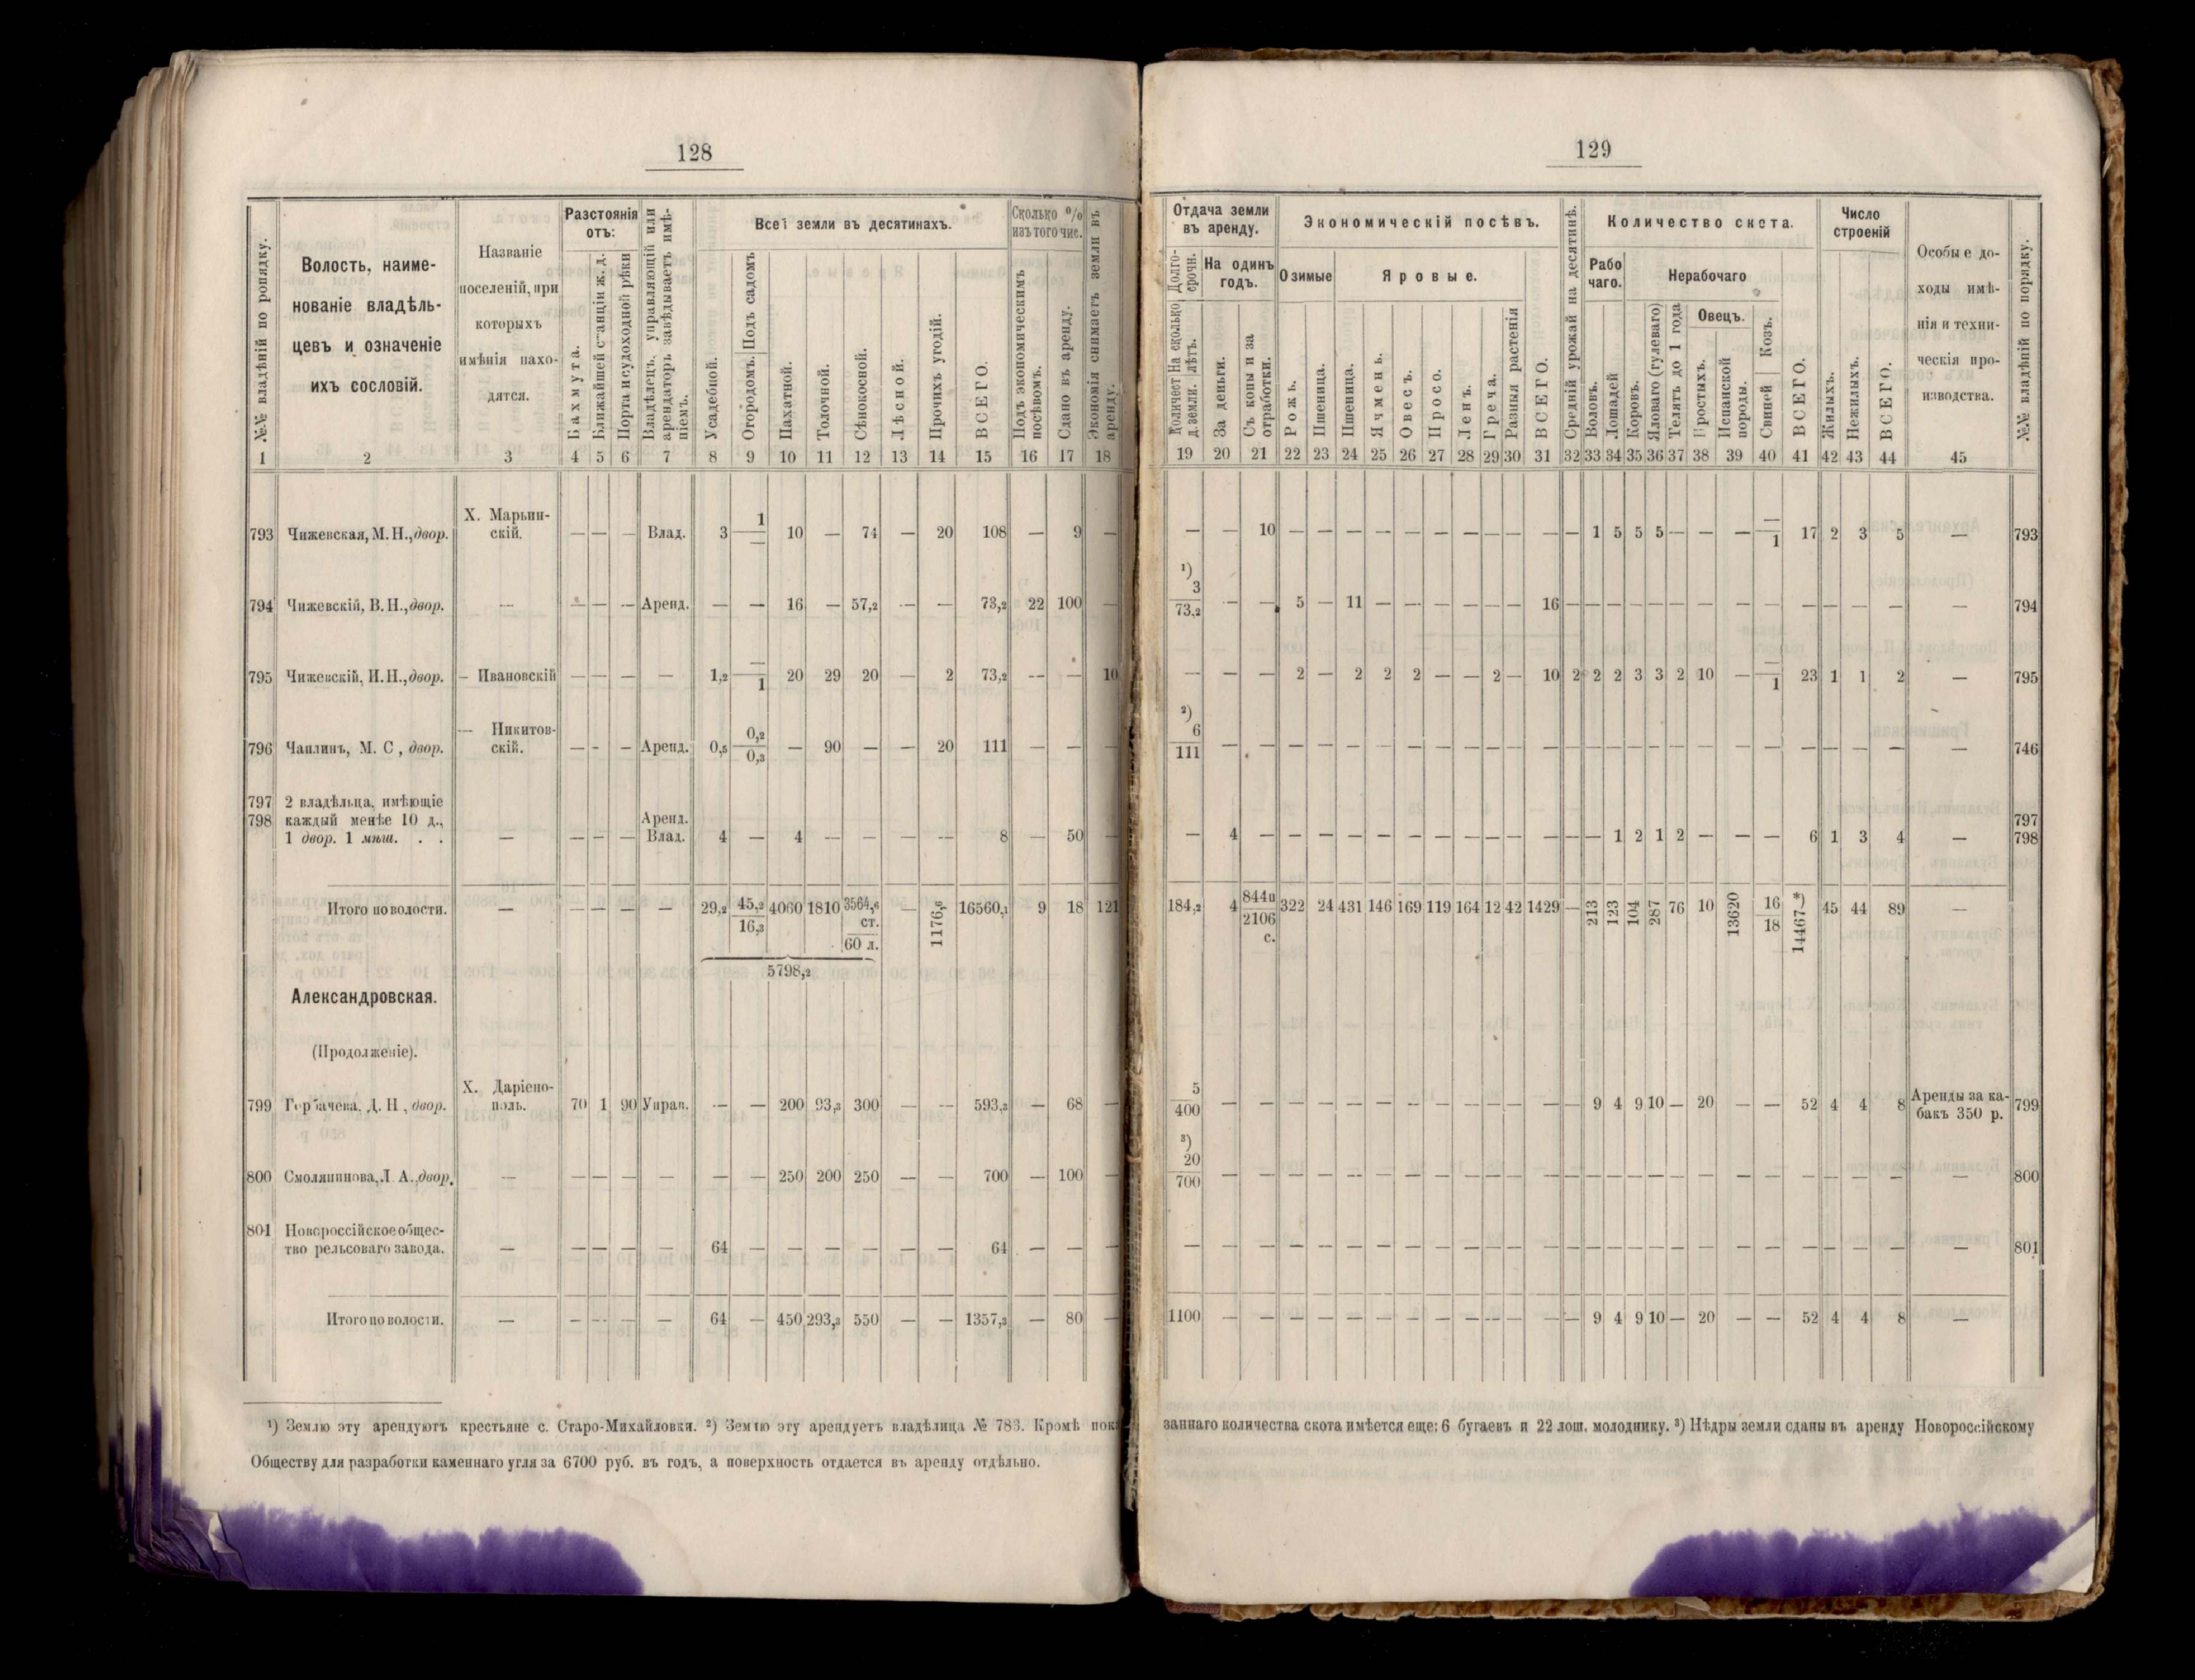 128
№№ владѣній по порядку.
Волость, наиме-
нованіе владѣль-
цевъ и означеніе
ихъ сословій.
Названіе
поселеній, при
которыхъ
имѣнія нахо-
дятся.
Разстоянія
отъ:
Бахмута.
Ближайшей станціи ж. д.
Порта и судоходной рѣки
Владѣлецъ, управляющій или
арендаторъ завѣдываетъ имѣ-
ніемъ.
Всеі земли въ десятинахъ.
Усадебной.
Огородомъ. Подъ садомъ
Пахатной.
Толочной.
Сѣнокосной.
Лѣсной.
Прочихъ угодій.
ВСЕГО.
Сколько %
изъ того чис.
Подъ экономическимъ
посѣвомъ.
Сдано въ аренду.
Экономія снимаетъ земли въ
аренду.
1 2 3 4 5 6 7 8 9 10 11 12 13 14 15 16 17 18
793 Чижевская, М. Н., двор. Х. Марьин-
скій. — — — Влад. 3 1/— 10 — 74 — 20 108 — 9 —
794 Чижевскій, В. Н., двор. — — — — Аренд. — — 16 — 57,2 — — 73,2 22 100 —
795 Чижевскій, И. Н., двор. — Ивановскій — — — — 1,2 —/1 20 29 20 — 2 73,2 — — 10
796 Чаплинъ, М. С, двор. — Никитов-
скій. — - — Аренд. 0,5 0,2/0,3 — 90 — — 20 111 — — —
797 2 владѣльца, имѣющіе
798 каждый менѣе 10 д., Аренд.
1 двор. 1 мѣщ. . . — — — — Влад. 4 — 4 — — — — 8 — 50 —
Итого по волости. — — — — — 29,2 45,2/16,3 4060 1810 3564,6 ст./60 л. — 1176,6 16560,1 9 18 121
5798,2
Александровская.
(Продолженіе).
799 Горбачева, Д. Н, двор. Х. Даріено-
поль. 70 1 90 Управ. — — 200 93,3 300 — — 593,3 — 68 —
800 Смолянинова, Л А., двор. — — — — — — — 250 200 250 — — 700 — 100 —
801 Новороссійское общес-
тво рельсоваго завода. — — — — — 64 — — — — — — 64 — — —
Итого по волости. — — — — — 64 — 450 293,3 550 — — 1357,3 — 80 —
¹) Землю эту арендуютъ крестьяне с. Старо-Михайловки. ²) Землю эту арендуетъ владѣлица № 783. Кромѣ пока
Обществу для разработки каменнаго угля за 6700 руб. въ годъ, а поверхность отдается въ аренду отдѣльно.
129
Отдача земли
въ аренду.
Долго-
срочн.
На сколько
лѣтъ.
Количест
д. земли.
На одинъ
годъ.
За деньги.
Съ копы и за
отработки.
Экономическій посѣвъ.
Озимые
Рожь.
Пшеница.
Яровые.
Пшеница.
Ячмень.
Овесъ.
Просо.
Ленъ.
Греча.
Разныя растенія
ВСЕГО.
Средній урожай на десятинѣ.
Количество скота.
Рабо
чаго.
Воловъ.
Лошадей
Нерабочаго
Коровъ.
Яловаго (гулеваго)
Телятъ до 1 года
Овецъ.
Простыхъ.
Испанской
породы.
Свиней Козъ.
ВСЕГО.
Число
строеній
Жилыхъ.
Нежилыхъ.
ВСЕГО.
Особые до-
ходы имѣ-
нія и техни-
ческія про-
изводства.
№№ владѣній по порядку.
19 20 21 22 23 24 25 26 27 28 29 30 31 32 33 34 35 36 37 38 39 40 41 42 43 44 45
— — 10 — — — — — — — — — — — 1 5 5 5 — — — —/1 17 2 3 5 — 793
¹) 3/73,2 — — 5 — 11 — — — — — — 16 — — — — — — — — — — — — — — 794
— — — 2 — 2 2 2 — — 2 — 10 2 2 2 3 3 2 10 — —/1 23 1 1 2 — 795
²) 6/111 — — — — — — — — — — — — — — — — — — — — — — — — — — 746
— 4 — — — — — — — — — — — — — 1 2 1 2 — — — 6 1 3 4 — 797
798
184,2 4 844п/2106 с. 322 24 431 146 169 119 164 12 42 1429 — 213 123 104 287 76 10 13620 16/18 14467*) 45 44 89 —
5/400 — — — — — — — — — — — — — 9 4 9 10 — 20 — — 52 4 4 8 Аренды за ка-
бакъ 350 р. 799
³) 20/700 — — — — — — — — — — — — — — — — — — — — — — — — — — 800
— — — — — — — — — — — — — — — — — — — — — — — — — — — 801
1100 — — — — — — — — — — — — — 9 4 9 10 — 20 — — 52 4 4 8 —
заннаго количества скота имѣется еще: 6 бугаевъ и 22 лош. молоднику. ³) Нѣдры земли сданы въ аренду Новороссійскому